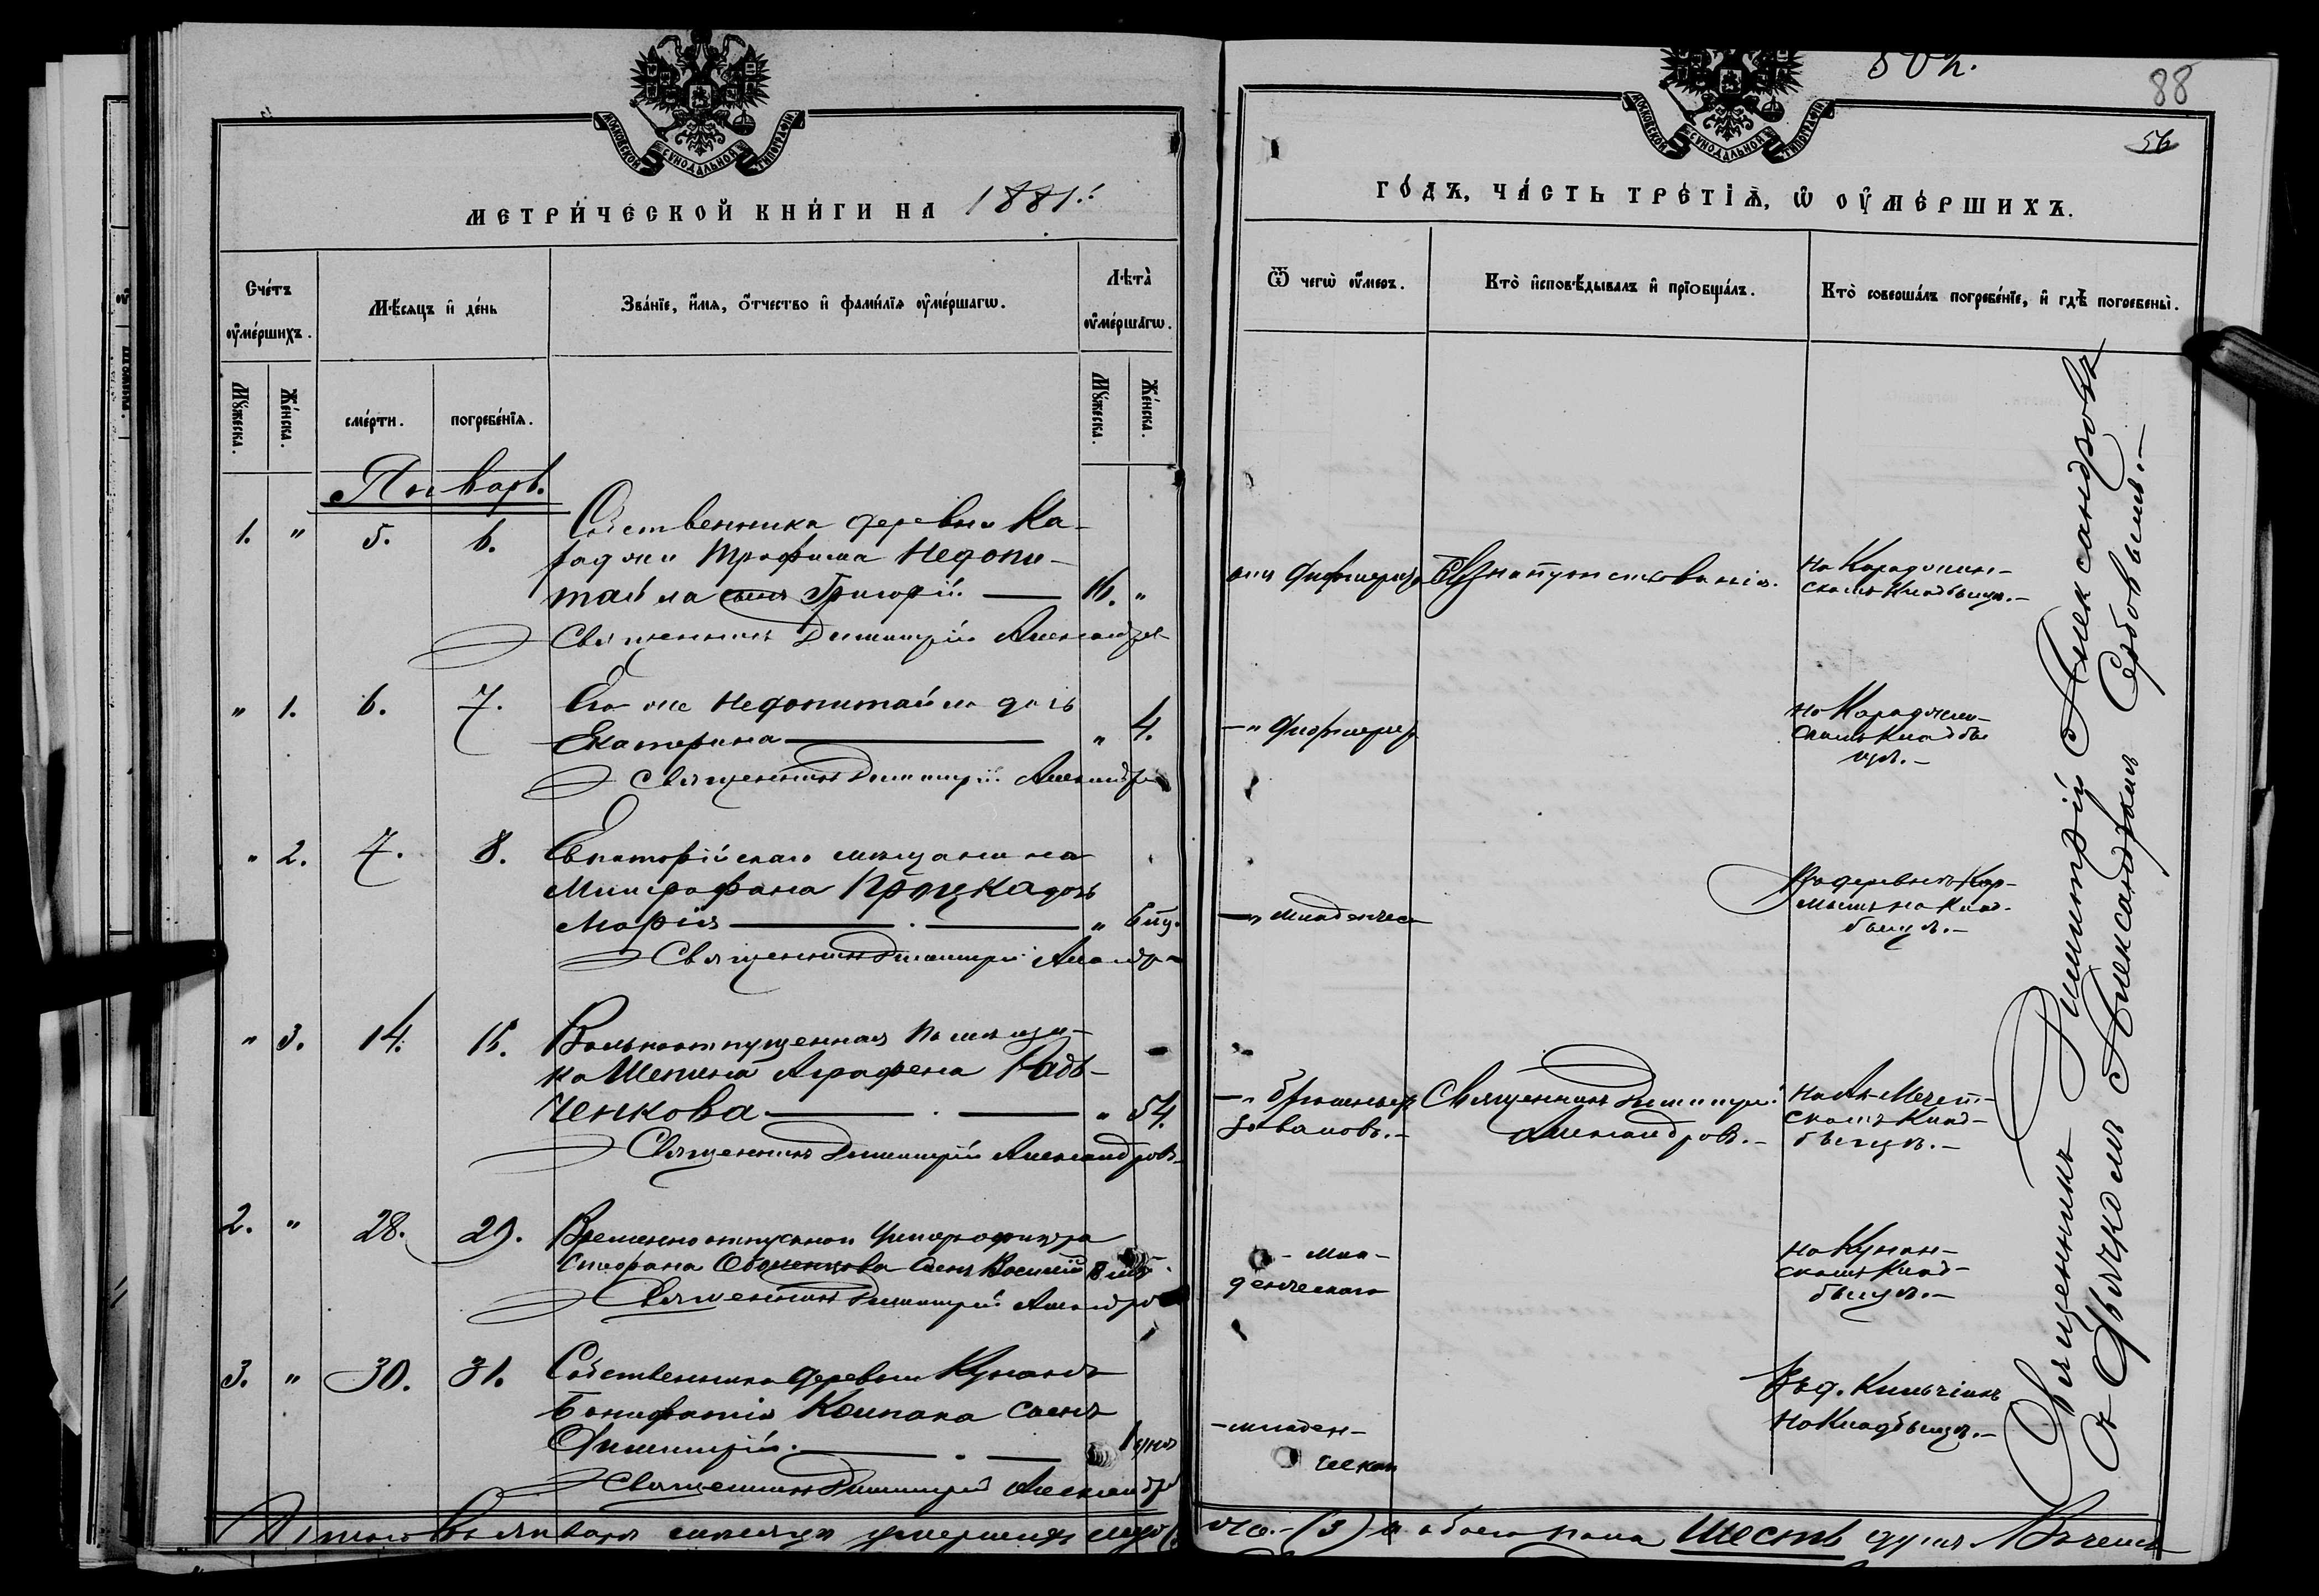 МОСКОВСКОЙ СѴНОДАЛЬНОЙ ТИПОГРАФІИ
МЕТРИ́ЧЕСКОЙ КНИ́ГИ НА 1881.
Сче́тъ ᲂу҆ме́ршихъ.
Мꙋ́жеска.
Же́нска.
Мѣ́сяцъ и҆ де́нь
сме́рти.
погребе́нїѧ.
Зва́нїе, и҆́мѧ, ѻ҆́тчество и҆ фами́лїѧ ᲂу҆ме́ршагѡ.
Лѣта̀ ᲂу҆ме́ршагѡ.
Мꙋ́жеска.
Же́нска.
Январь.
1. " 5. 6. Собственника деревни Ка-
раджи Трофима Недопи-
тайла сынъ Григорій — 16. "
Священникъ Димитрій Александров
" 1. 6. 7. Его же Недопитайла дочь
Екатерина — " 4.
Священникъ Димитрій Александров
" 2. 7. 8. Евпаторійскаго мѣщанина
Митрофана дочь
Марія — "
Священникъ Димитрій Александров
" 3. 14. 15. Вольноотпущенная помѣщи-
ка Шепина Аграфена Радь-
ченкова — " 54.
Священникъ Димитрій Александровъ
2. " 28. 29. Временноотпускнаго
Стефана сынъ Василій
Священникъ Димитрій Александров
3. " 30. 31. Собственника деревни Кунанъ
Бонифатія Колпака сынъ
Димитрій. —
Священникъ Димитрій Александров
Итого въ январѣ мѣсяцѣ умершихъ
50 к.
88
56
МОСКОВСКОЙ СѴНОДАЛЬНОЙ ТИПОГРАФІИ
ГО́ДЪ, ЧА́СТЬ ТРЕ́ТІѦ, Ѡ ОУ҆МЕ́РШИХЪ.
Ѿ чегѡ̀ ᲂу҆́меръ.
Кто̀ и҆сповѣ́дывалъ и҆ прїѻбща́лъ.
Кто̀ соверша́лъ погребе́нїе, и҆ гдѣ̀ погребены̀.
отъ дифтерита Безъ напутствованія. На Караджин-
скомъ кладбищѣ. —
— " дифтерит На Караджин-
скомъ кладби
щѣ. —
— " младенческ Въ деревнѣ Кар-
на клад-
бищѣ. —
— " Священникъ Димитрій
Александровъ. —
На Ак-Мечет-
скомъ клад-
бищѣ. —
— мла-
денческаго
На Кунан-
скомъ клад-
бищѣ. —
— младен-
ческаго
Въ д.
на кладбищѣ. —
Священникъ Димитрій Александровъ
съ Дьячкомъ Александромъ
(3) а обоего пола шесть душъ